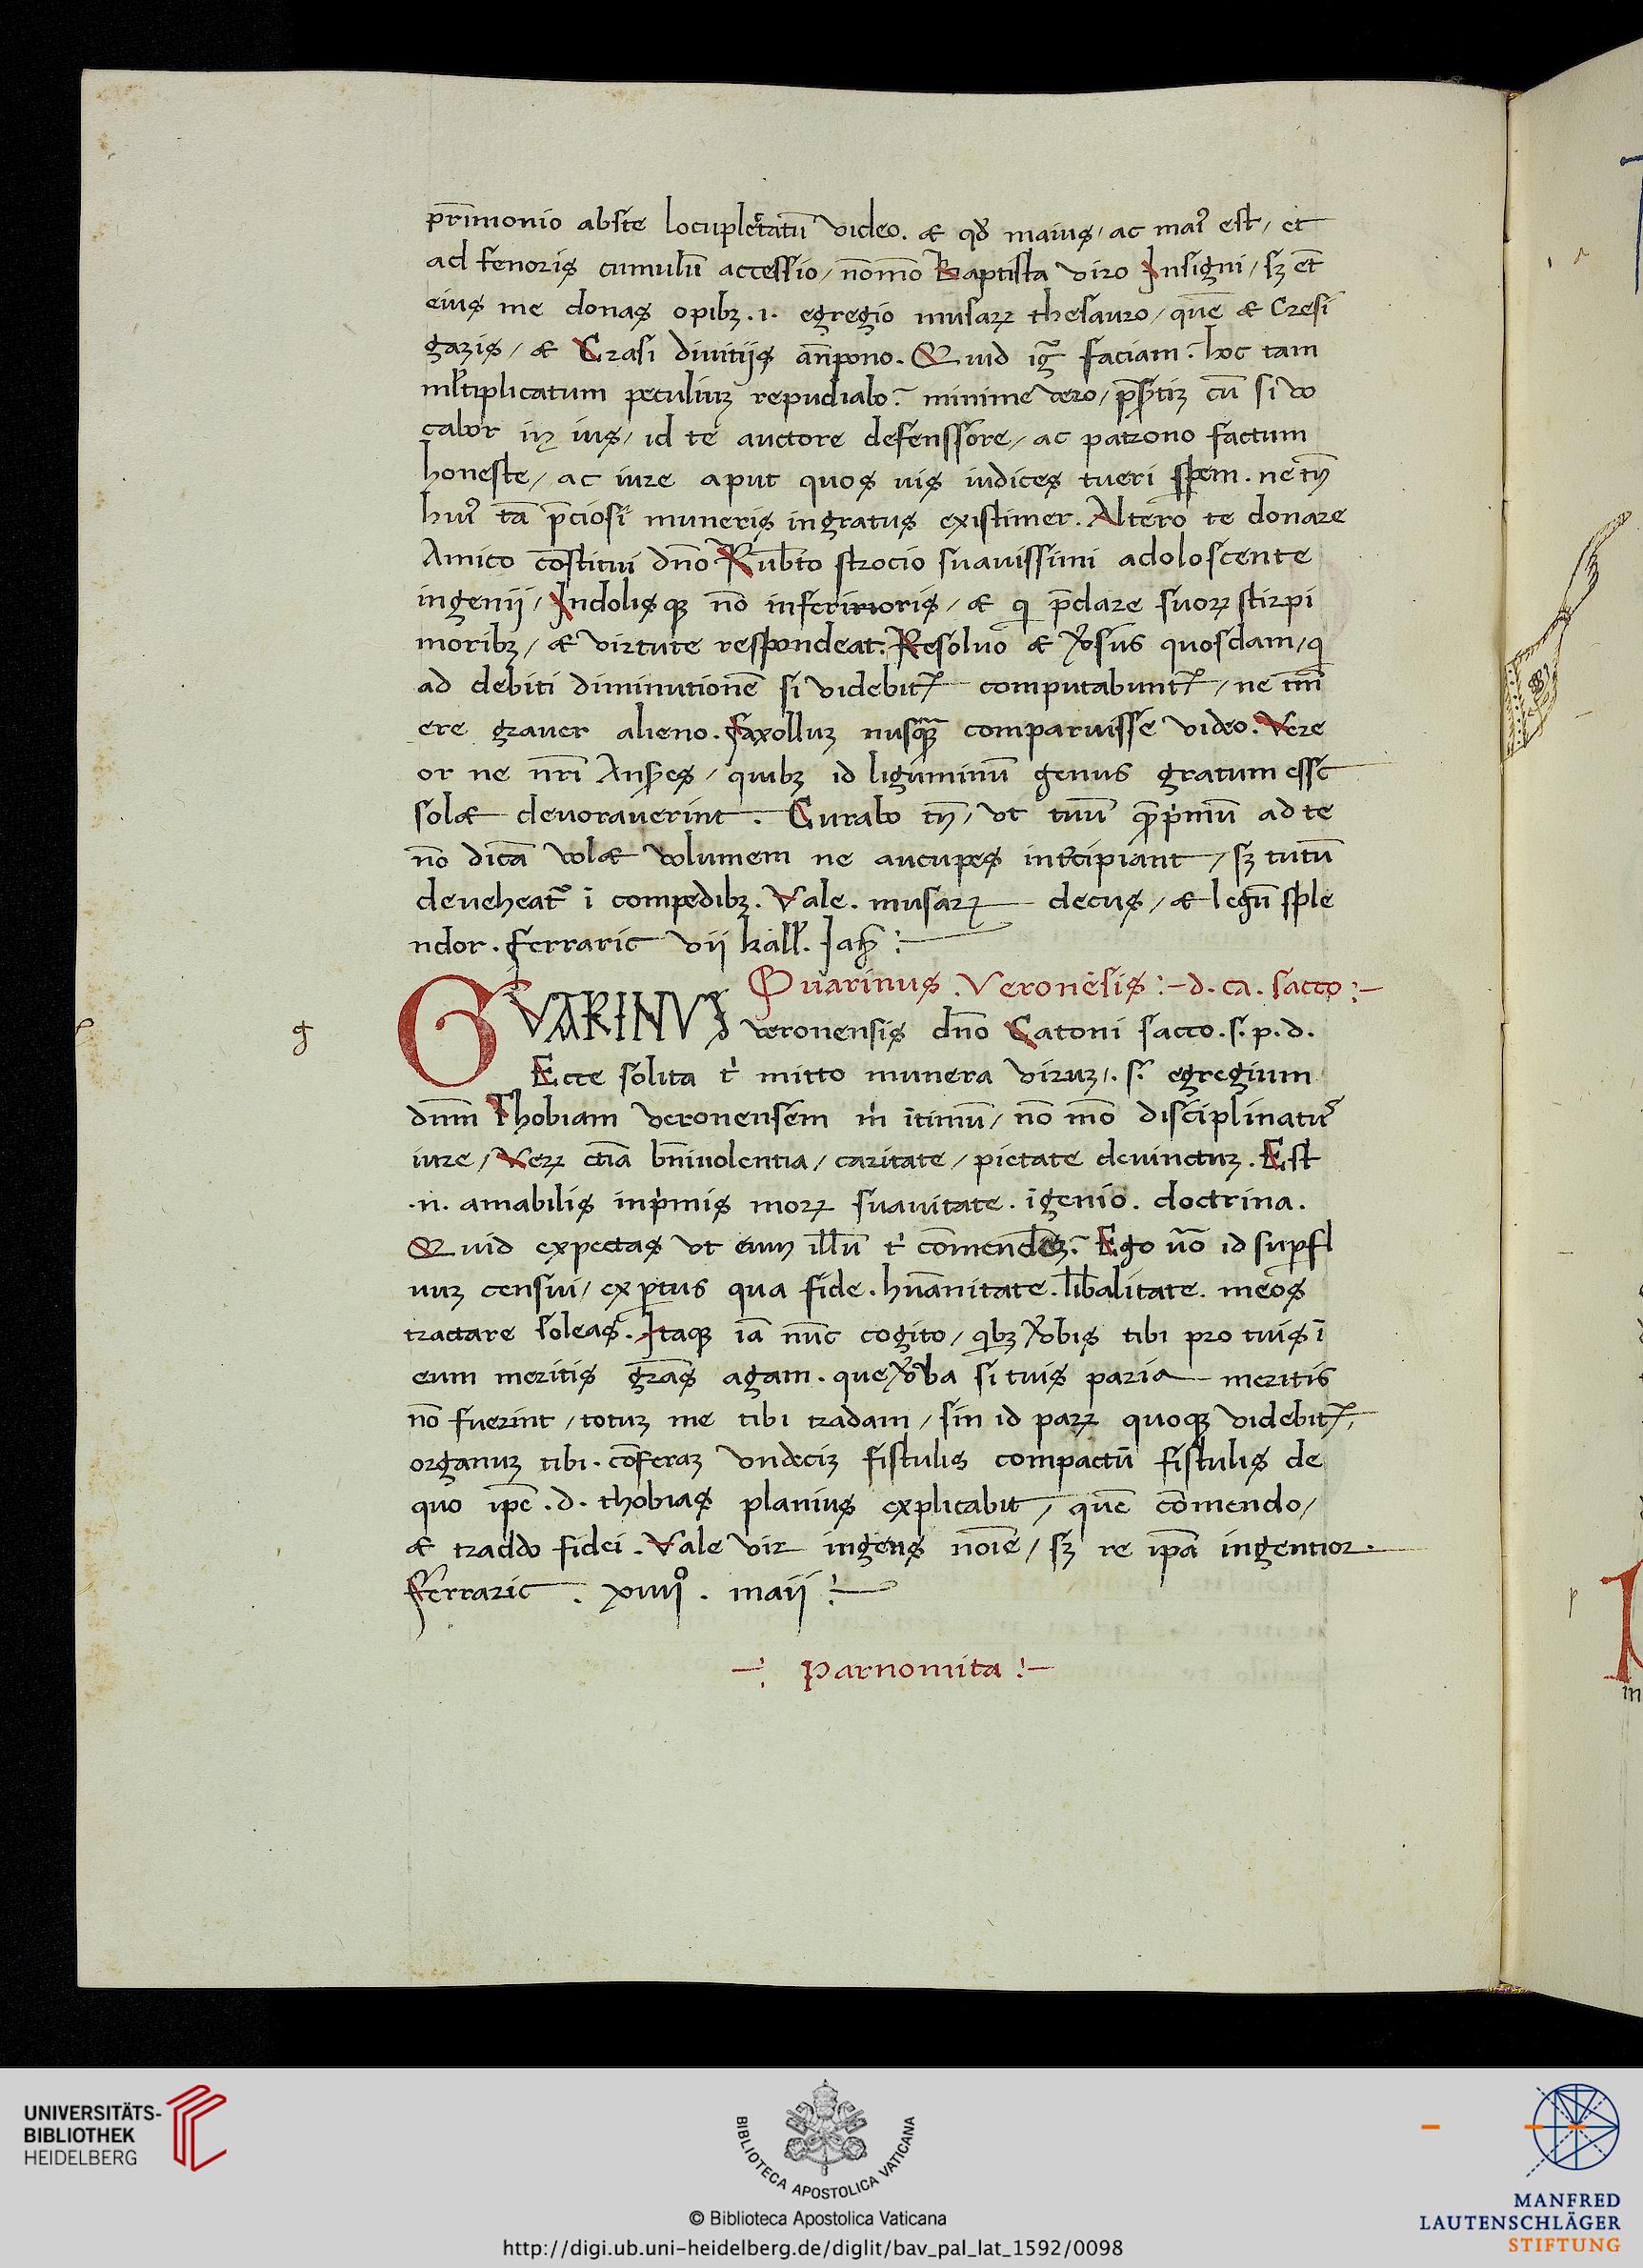 pr̄imonio abste locupletatū video. & qđ maius, ac mai᷒ est, et
ad fenoris cumulū accessio, nōmō Baptista viro Insigni, sꝫ et̄
eius me donas opibꝫ .i. egregio musarꝝ thesauro, quē & Cresi
gazis, & Crasi divitijs an̄pono. Quid ig̃ faciam. hoc tam
mĺtiplicatum peculiuꝫ repudiabo? minime vero, cū si vo
cabor in ius, id te auctore defenssore, ac patrono factum
honeste, ac iure aput quos vis iudices tueri spem. ne tn̄
hui᷒ tā p̄ciosi muneris ingratus existimer. Altero te donare
Amico cōstitui dn̄o Rub̄to strocio suavissimi adoloscente
ingenij, Indolisqꝫ nō inferimoris, & qi p̄clare suorꝝ stirpi
moribꝫ, & virtute respondeat. Resoluo & v̾sus quosdam, q
ad debiti diminutionē si videbit᷒ computabunt᷒, ne im̄
ere graver alieno. faxolluꝫ nusq̄ꝫ comparuisse video. Vere
or ne nr̄i Ansꝫes, quibꝫ id liguminū genus gratum esse
sol& devoraverint. Curabo tn̄, ut tuū ad te
nō dicā vol& volumem ne aucupes int̾cipiant, sꝫ tutū
deveheat᷒ ī compedibꝫ. Vale. musarꝝ decus, & legū sple
ndor. Ferrarie vii kall̄. Ian̄ :—
Guarinus . Veronēsis :– d. ca. sacco :–
g
GVARINVS veronensis dn̄o Catoni sacco. s. p. d.
Ecce solita ti̇ mitto munera viruꝫ, .s. egregium
dnm̄ Thobiam veronensem mi̇ ītimū, nō mō disciplinatu᷒
iure, Verꝝ etiā bn̄ivolentia, caritate, pietate devinctuꝫ. Est
.n. amabilis inpi̇mis morꝝ suavitate. īgenio. doctrina.
Quid expectas ut eum illū ti̇ cōmendeꝫ? Ego v̄o id supfl
uuꝫ censui, exꝑtus qua fide. hūanitate. lib̄alitate. meos
tractare soleas. Itaqꝫ iā nūc cogito, qibꝫ v̾bis tibi pro tuis ī
eum meritis gr̄as agam. que v̾ba si tuis paria meritis
nō fuerint, totuꝫ me tibi tradam, sin id parꝝ quoqꝫ videbit᷒,
organuꝫ tibi. cōferaꝫ undeciꝫ fistulis compactū fistulis de
quo ip̄e .d. thobias planius explicabit, quē cōmendo,
& traddo fidei. Vale vir ingens noīe, sꝫ re ip̄a ingentior.
Ferrarie . xiiii̊ . maii :—
–: Parnomita :–
UNIVERSITÄTS-
BIBLIOTHEK
HEIDELBERG
BIBLIOTECA APOSTOLICA VATICANA
© Biblioteca Apostolica Vaticana
http://digi.ub.uni-heidelberg.de/diglit/bav_pal_lat_1592/0098
MANFRED
LAUTENSCHLÄGER
STIFTUNG